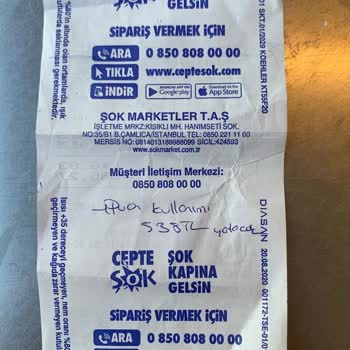 GELSİN
SİPARİŞ VERMEK İÇİN
ARA 0 850 808 00 00
TIKLA www.ceptesok.com
İNDİR Google play App Store
ŞOK MARKETLER T.A.Ş
İŞLETME MRKZ:KISIKLI MH. HANIMSETI SOK.
NO:35/B1 B.ÇAMLICA/İSTANBUL TEL: 0850 221 11 00
MERSIS NO: 0814013189988099 SİCİL:424593
www.sokmarket.com.tr
Müşteri İletişim Merkezi:
0850 808 00 00
kullanımı
CEPTE ŞOK
ŞOK KAPINA GELSİN
SİPARİŞ VERMEK İÇİN
ARA 0 850 808 00 00
SKT.01/2029 KOEHLER KT55F20
20.08.2020 001172-TSE-01/0
Isısı +35 dereceyi geçmeyen, nem oranı
geçirmeyen ve kağıda zarar vermeyen
%80'in altında olan ortamlarda, ışık
saklanması gerekmektedir.